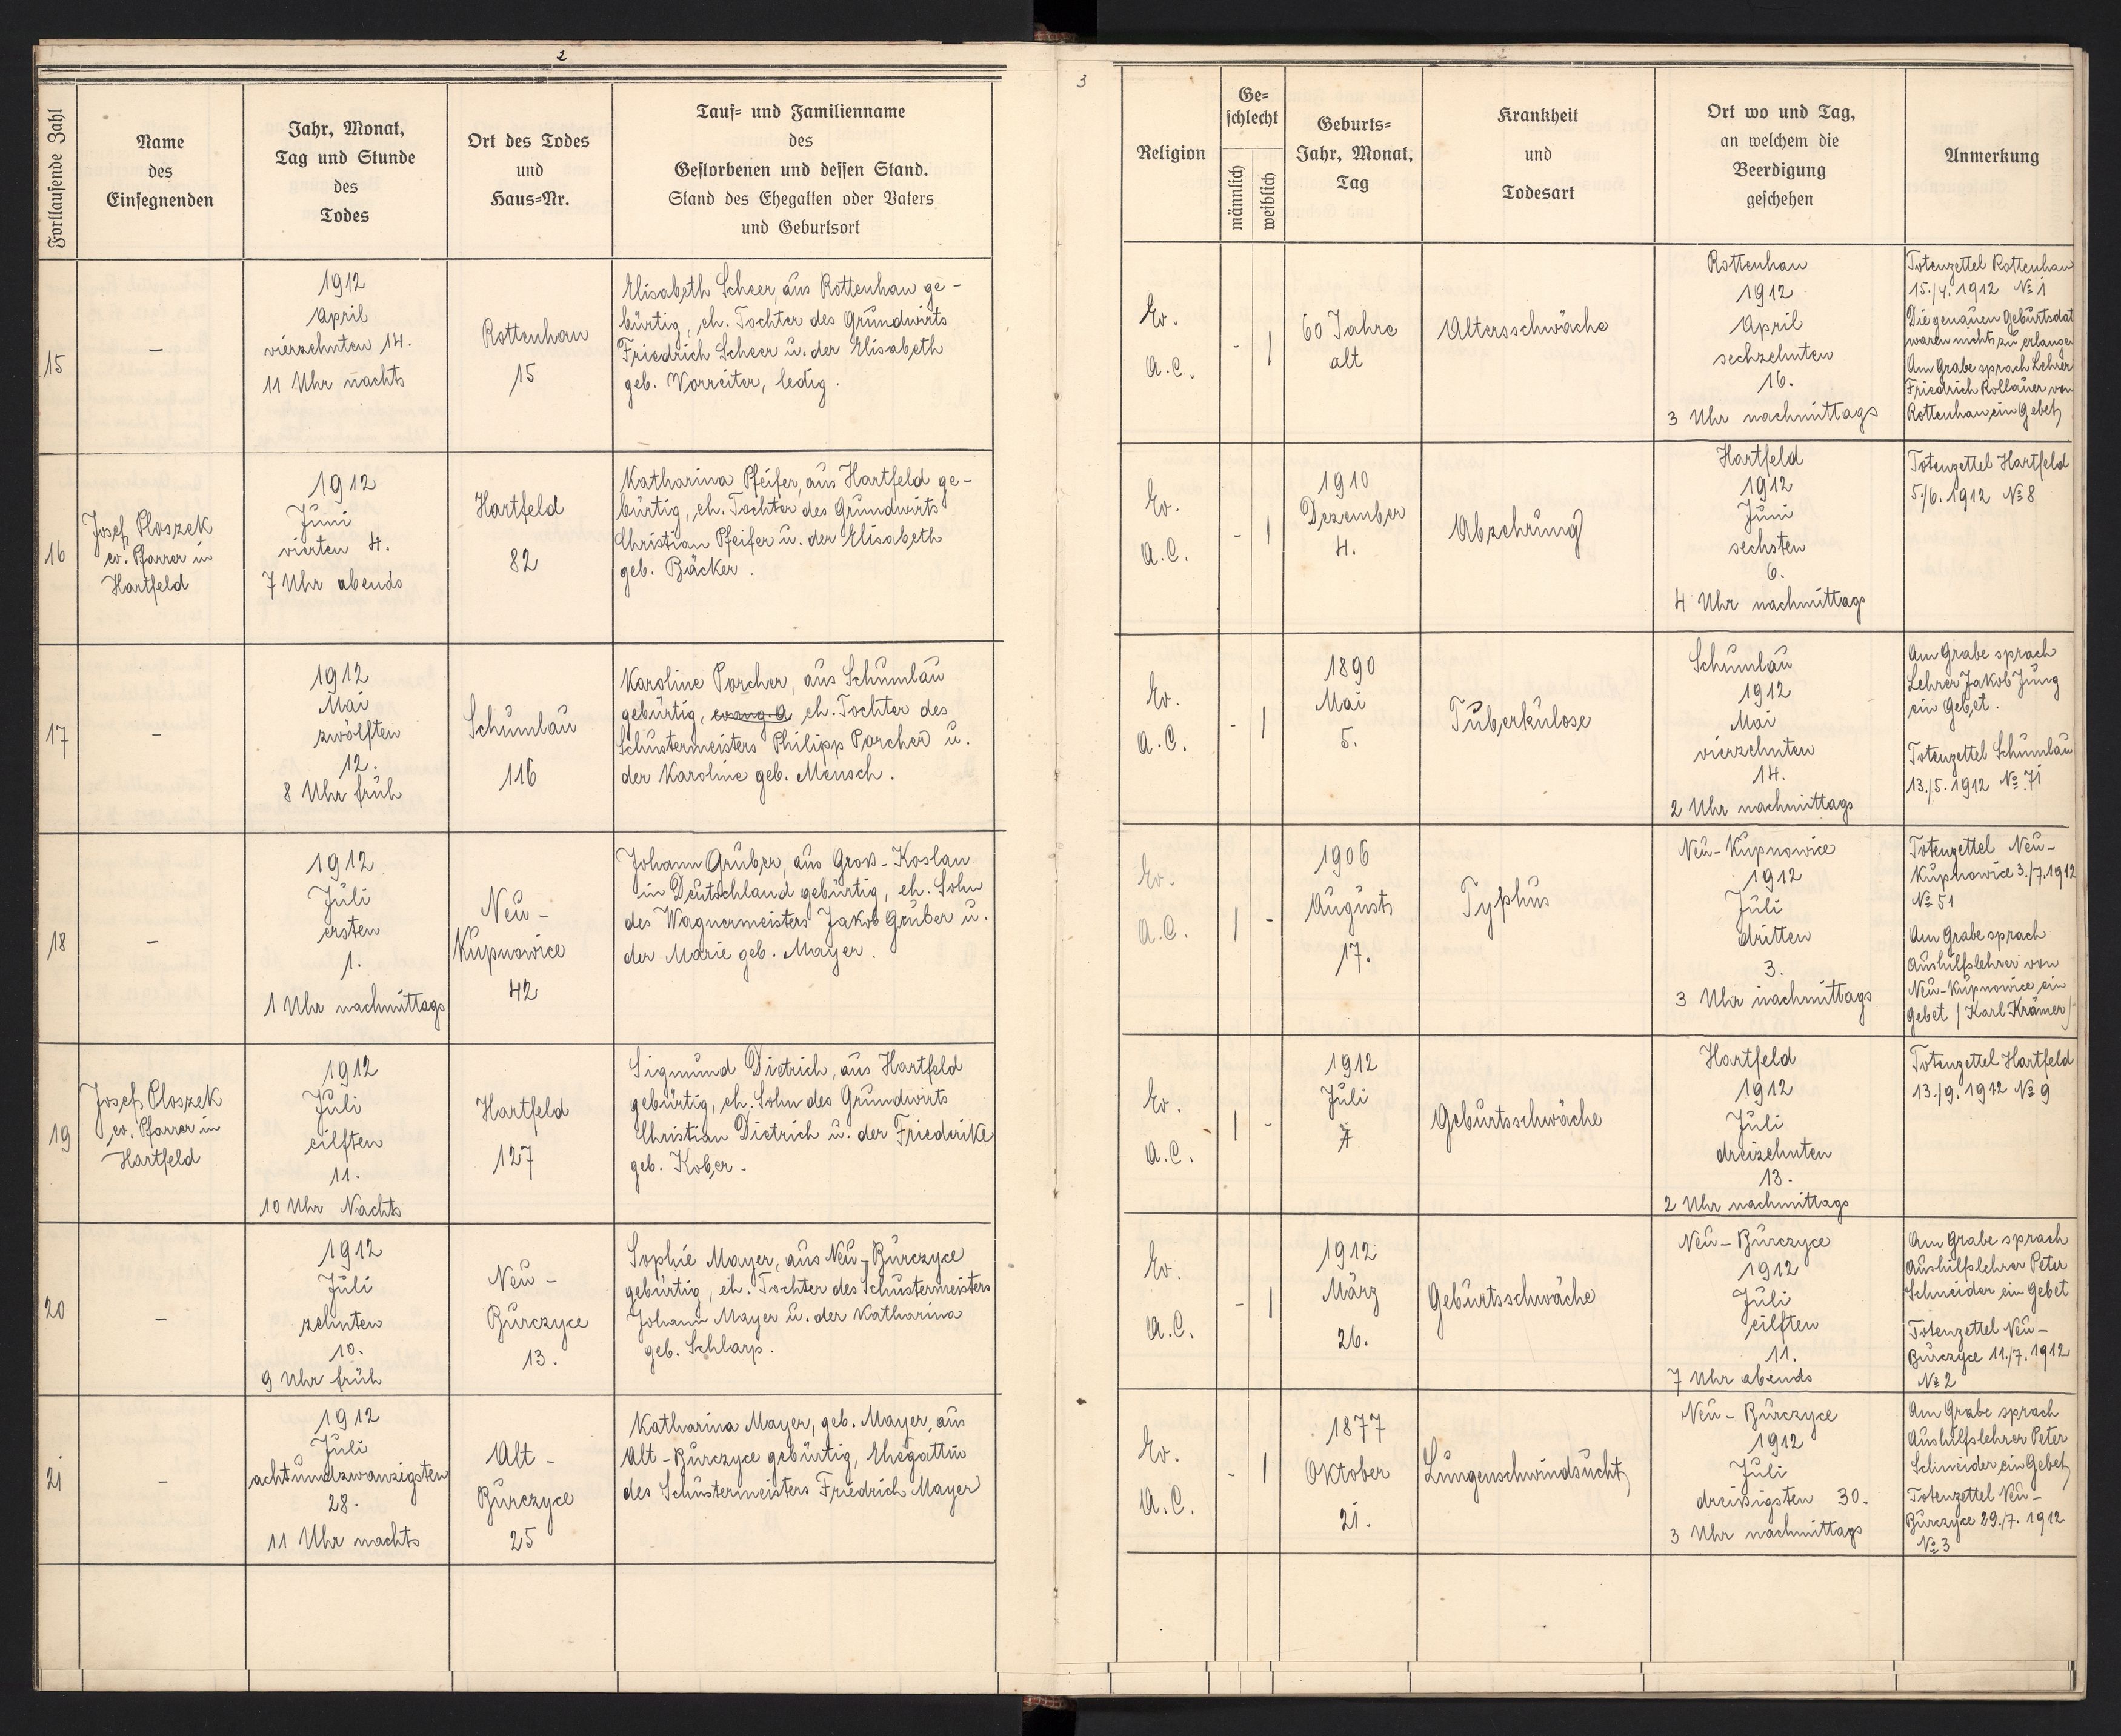 2
Fortlaufende Zahl
Name
des
Einsegnenden
Jahr, Monat,
Tag und Stunde
des
Todes
Ort des Todes
und
Haus-Nr.
Tauf- und Familienname
des
Gestorbenen und dessen Stand.
Stand des Ehegatten oder Vaters
und Geburtsort
3
Religion
Ge-
schlecht
männlich
weiblich
Geburts-
Jahr, Monat,
Tag
Krankheit
und
Todesart
Ort wo und Tag,
an welchem die
Beerdigung
geschehen
Anmerkung
15
–
1912
April
vierzehnten 14.
11 Uhr nachts
Rottenhan
15
Elisabeth Scheer, aus Rottenhan ge-
bürtig, eh. Tochter des Grundwirts
Friedrich Scheer u. der Elisabeth
geb. Vorreiter, ledig.
Ev.
A.C.
-
1
60 Jahre
alt
Altersschwäche
Rottenhan
1912
April
sechzehnten
16.
3 Uhr nachmittags
Totenzettel Rottenhan
15./4. 1912 № 1
Die genauen Geburtsdat
waren nicht zu erlangen
Am Grabe sprach Lehrer
Friedrich Rollauer von
Rottenhan ein Gebet
16
Josef Ploszek
ev. Pfarrer in
Hartfeld
1912
Juni
vierten 4.
7 Uhr abends
Hartfeld
82
Katharina Pfeifer, aus Hartfeld ge-
bürtig, eh. Tochter des Grundwirts
Christian Pfeifer u. der Elisabeth
geb. Bäcker.
Ev.
A.C.
-
1
1910
Dezember
4.
Abzehrung
Hartfeld
1912
Juni
sechsten
6.
4 Uhr nachmittags
Totenzettel Hartfeld
5./6. 1912 № 8
17
–
1912
Mai
zwölften
12.
8 Uhr früh
Schumlau
116
Karoline Porcher, aus Schumlau
gebürtig, evang. A eh. Tochter des
Schustermeisters Philipp Porcher u.
der Karoline geb. Mensch.
Ev.
A.C.
-
1
1890
Mai
5.
Tuberkulose
Schumlau
1912
Mai
vierzehnten
14.
2 Uhr nachmittags
Am Grabe sprach
Lehrer Jakob Jung
ein Gebet.
Totenzettel Schumlau
13./5. 1912 № 71
18
–
1912
Juli
ersten
1.
1 Uhr nachmittags
Neu-
Kupnowice
42
Johann Gruber, aus Gross-Koslau
in Deutschland gebürtig, eh. Sohn
des Wagnermeisters Jakob Gruber u.
der Marie geb. Mayer.
Ev.
A.C.
1
-
1906
Augusts
17.
Typhus
Neu-Kupnowice
1912
Juli
dritten
3.
3 Uhr nachmittags
Totenzettel Neu-
Kupnowice 3./7. 1912
№ 51
Am Grabe sprach
Aushilfslehrer von
Neu-Kupnowice ein
Gebet (Karl Krämer)
19
Josef Ploszek
ev. Pfarrer in
Hartfeld
1912
Juli
eilften
11.
10 Uhr Nachts
Hartfeld
127
Sigmund Dietrich, aus Hartfeld
gebürtig, eh. Sohn des Grundwirts
Christian Dietrich u. der Friederike
geb. Kober.
Ev.
A.C.
1
-
1912
Juli
7
Geburtsschwäche
Hartfeld
1912
Juli
dreizehnten
13.
2 Uhr nachmittags
Totenzettel Hartfeld
13./9. 1912 № 9
20
–
1912
Juli
zehnten
10.
9 Uhr früh
Neu-
Burczyce
13.
Sophie Mayer, aus Neu-Burczyce
gebürtig, eh. Tochter des Schustermeisters
Johann Mayer u. der Katharina
geb. Schlarp.
Ev.
A.C.
-
1
1912
März
26.
Geburtsschwäche
Neu-Burczyce
1912
Juli
eilften
11.
7 Uhr abends
Am Grabe sprach
Aushilfslehrer Peter
Schneider ein Gebet
Totenzettel Neu-
Burczyce 11./7. 1912
№ 2
21
–
1912
Juli
achtundzwanzigsten
28.
11 Uhr nachts
Alt-
Burczyce
25
Katharina Mayer, geb. Mayer, aus
Alt-Burczyce gebürtig, Ehegattin
des Schustermeisters Friedrich Mayer
Ev.
A.C.
-
1
1877
Oktober
21.
Lungenschwindsucht
Neu-Burczyce
1912
Juli
dreissigsten 30.
3 Uhr nachmittags
Am Grabe sprach
Aushilfslehrer Peter
Schneider ein Gebet
Totenzettel Neu-
Burczyce 29./7. 1912
№ 3